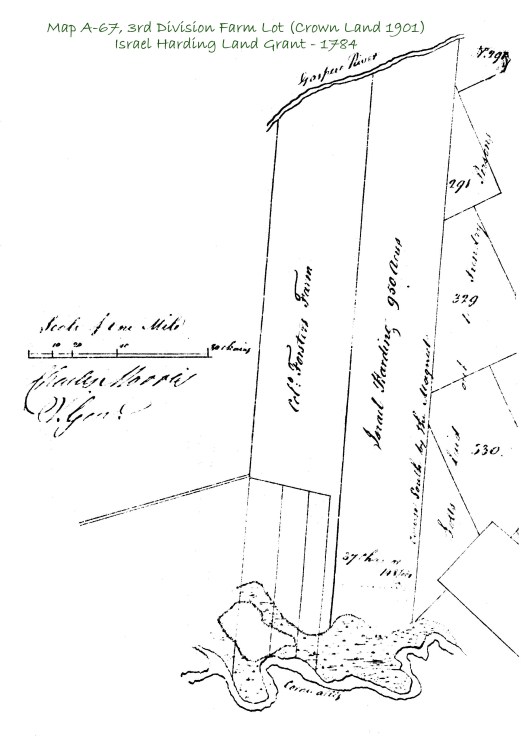 Map A-67, 3rd Division Farm Lot (Crown Land 1901)
Israel Harding Land Grant - 1784
Gasper River
291
Persons
329
Lotts laid out to Sundry
330.
Col.º Forsters Farm
Israel Harding 950 Acres
South by the Magnet
Scale of one Mile
10 20 40 80 chains
Charles Morris
S. Genl
37 Chains